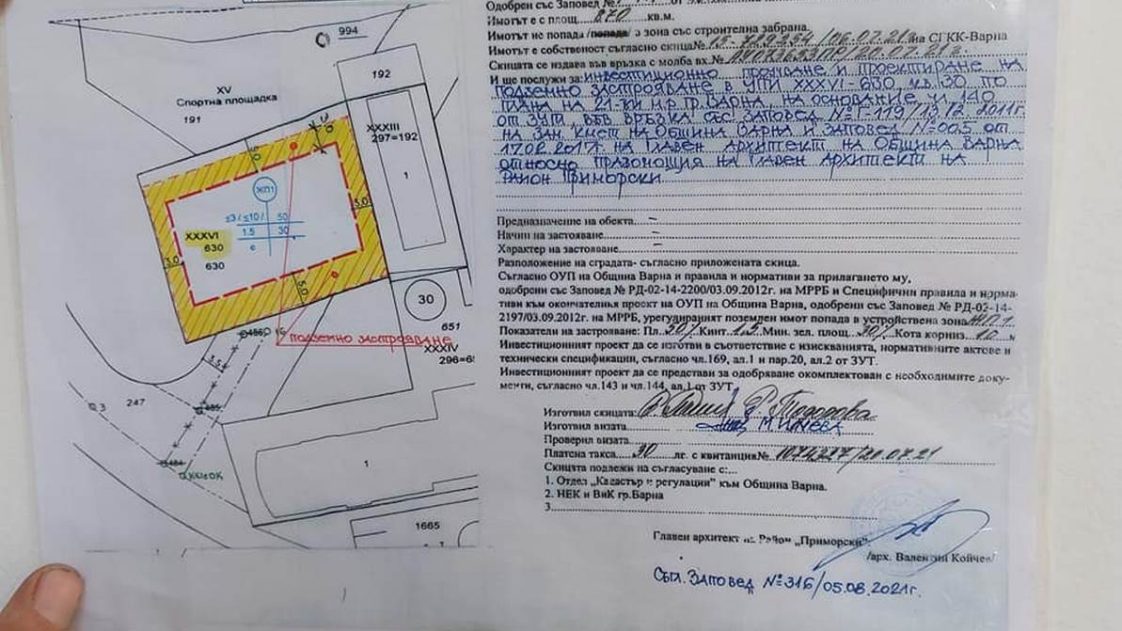 Одобрен със Заповед №
Имотът е с площ....870....кв.м.
Имотът не попада /попада/ в зона със строителна забрана.
Имотът е собственост съгласно скица№ 15-729354/06.07.21г на СГКК-Варна
Скицата се издава във връзка с молба вх.№ /20.07.21г.
И ще послужи за: инвестиционно проучване и проектиране на
подземно застрояване в УПИ XXXVI-630, кв.30 по
плана на 21-ки м.р. гр. Варна, на основание чл.140
от ЗУТ, във връзка със заповед №Г-119/13.12.2011г.
на зам. кмет на Община Варна и заповед №005 от
17.02.2017г. на Главен архитект на Община Варна
относно правомощия на Главен архитект на
район Приморски.
Предназначение на обекта.. –
Начин на застояване.... –
Характер на застояване.... –
Разположение на сградата- съгласно приложената скица.
Съгласно ОУП на Община Варна и правила и нормативи за прилагането му,
одобрени със Заповед № РД-02-14-2200/03.09.2012г. на МРРБ и Специфични правила и норма-
тиви към окончателния проект на ОУП на Община Варна, одобрени със Заповед № РД-02-14-
2197/03.09.2012г. на МРРБ, урегулираният поземлен имот попада в устройствена зона
Показатели на застрояване: Пл. 50% Кинт 1,5 Мин. зел. площ 30% Кота корниз 10 м
Инвестиционният проект да се изготви в съответствие с изискванията, нормативните актове и
технически спецификации, съгласно чл.169, ал.1 и пар.20, ал.2 от ЗУТ.
Инвестиционният проект да се представи за одобряване окомплектован с необходимите доку-
менти, съгласно чл.143 и чл.144, ал.1 от ЗУТ.
Изготвил скицата: Тодорова
Изготвил визата М. Илчева
Проверил визата
Платена такса....30....лг. с квитанция№ /20.07.21
Скицата подлежи на съгласуване с:...
1. Отдел „Кадастър и регулации" към Община Варна.
2. НЕК и ВиК гр.Варна
3
Главен архитект на Район „Приморски"
/арх. Валентин Койчев/
Съгл. Заповед №316/05.08.2021г.
994
192
XV
Спортна площадка
191
XXXIII
297=192
1
5.0
3.0
ЖП1
≤3/≤10/ 50
1.5 30
е
XXXVI
630
630
3.0
3.0
5.0
30
651
подземно застрояване
XXXIV
296=65
3.5
247
3
485
484
1
1665
1